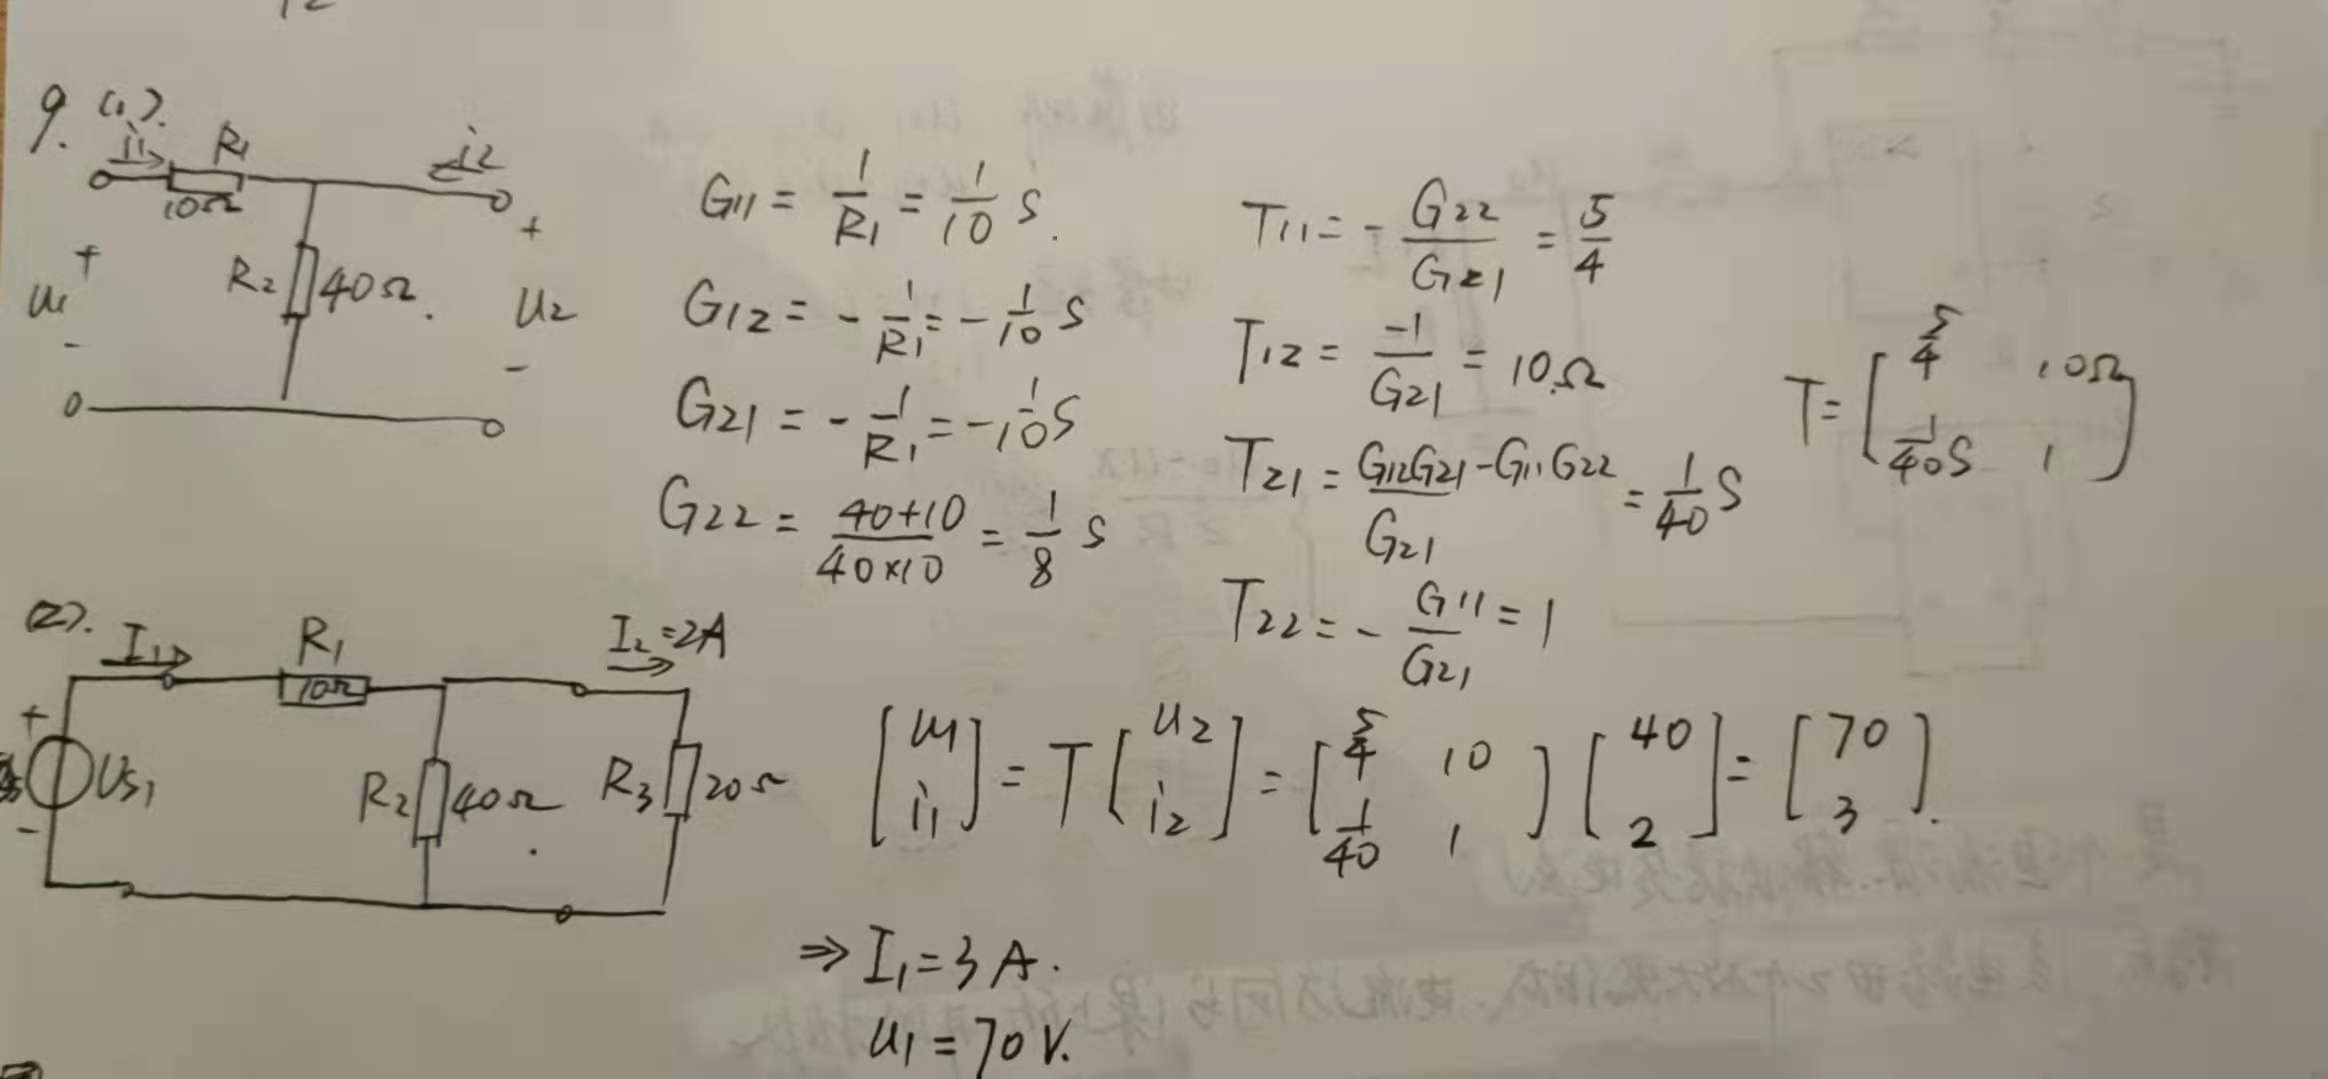 9. (1).
i1
R1
10Ω
i2
+
u1
-
R2
40Ω
+
u2
-
G11 = 1/R1 = 1/10 S.
G12 = -1/R1 = -1/10 S
G21 = -1/R1 = -1/10 S
G22 = (40+10)/(40×10) = 1/8 S
T11 = -G22/G21 = 5/4
T12 = -1/G21 = 10Ω
T21 = (G12G21-G11G22)/G21 = 1/40 S
T22 = -G11/G21 = 1
T = [5/4 10Ω
1/40 S 1]
(2).
I1
R1
10Ω
I2=2A
+
Us1
-
R2
40Ω
R3
20Ω
[u1
i1] = T [u2
i2] = [5/4 10
1/40 1] [40
2] = [70
3].
⇒ I1=3A.
u1=70V.